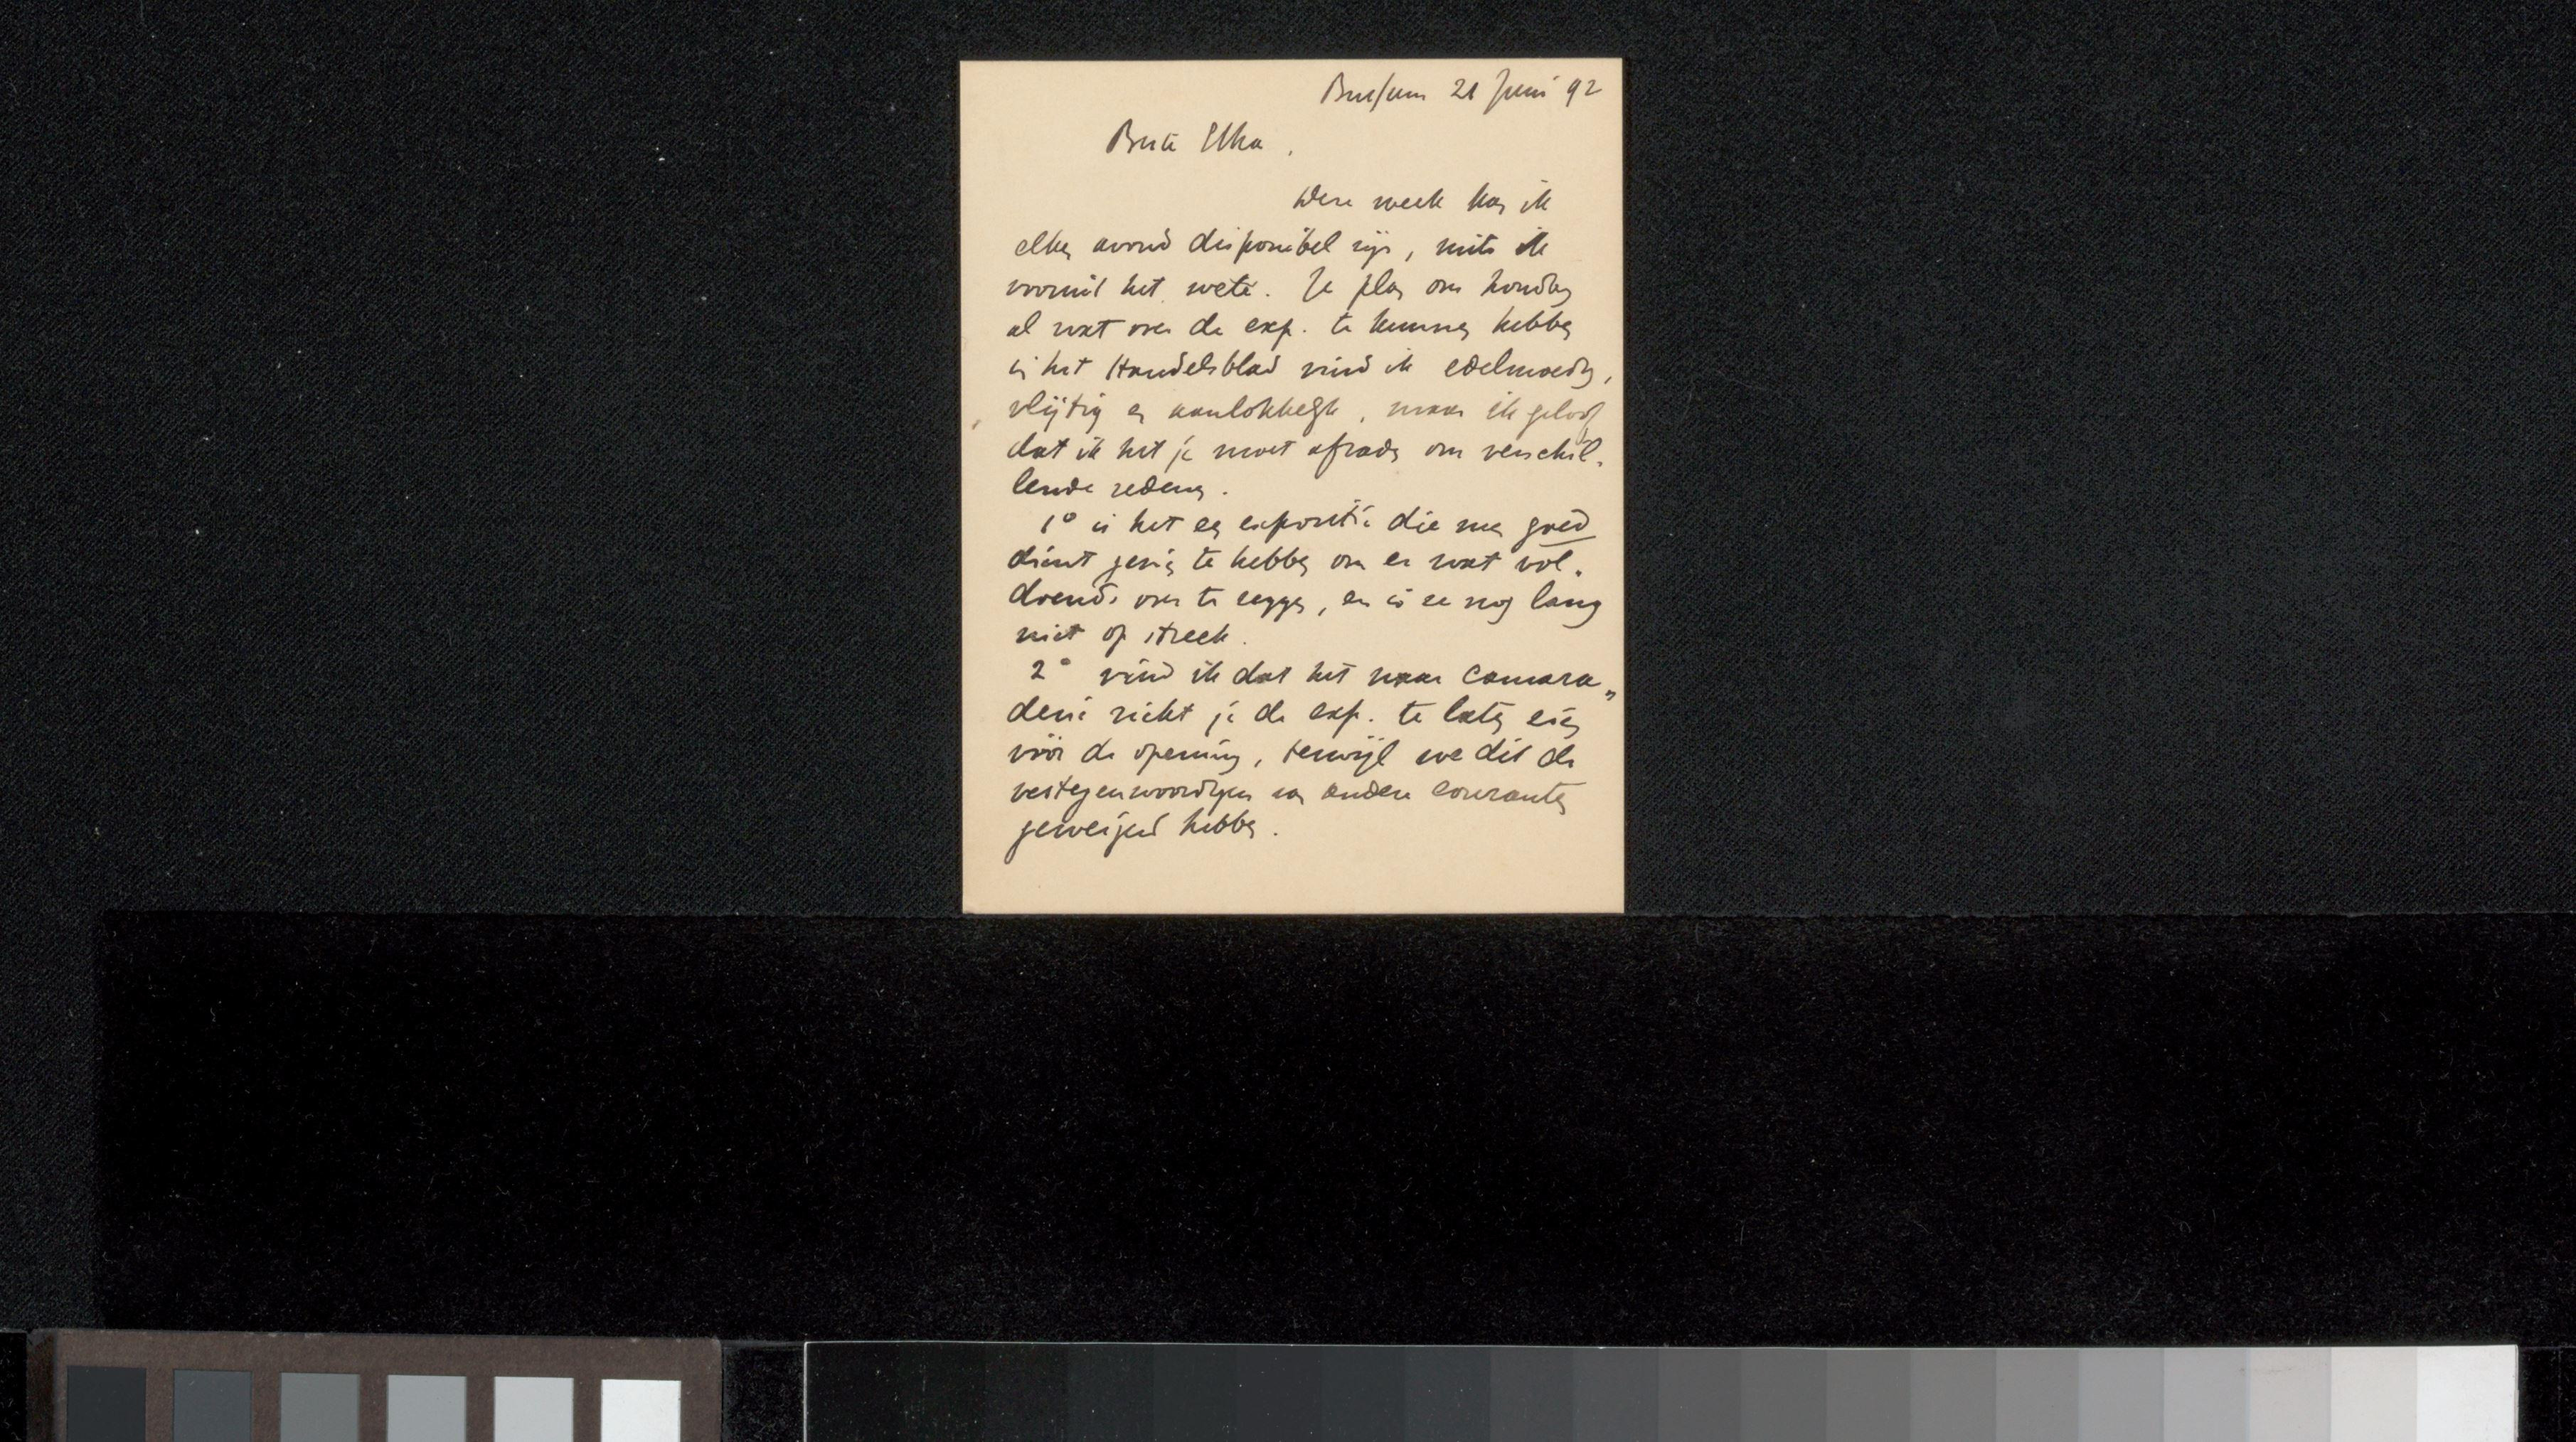 Bussum 21 Juni 92
Beste Etha,
Deze week kan ik
elken avond disponibel zijn, mits ik
vooruit het wete. Je plan om Zondag
al wat over de exp. te kunnen hebben
in het Handelsblad vind ik edelmoedig,
vlijtig en aanlokkelijk, maar ik geloof
dat ik het je moet afraden om verschil-
lende redenen.
1° is het een expositie die men goed
dient gezien te hebben om er wat vol-
doends over te zeggen, en is ze nog lang
niet op streek.
2° vind ik dat het naar camara„
derie riekt je de exp. te laten zien
vóór de opening, terwijl we dit de
vertegenwoordigers van andere couranten
geweigerd hebben.